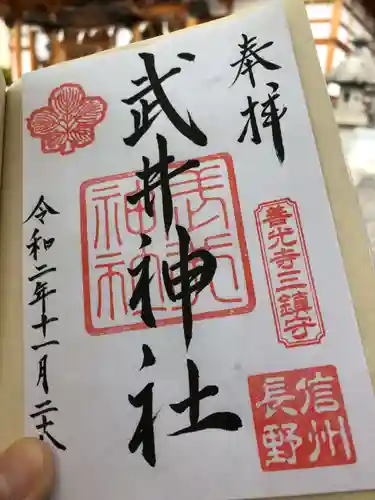 奉拝
善光寺三鎮守
信州
長野
武井神社
令和二年十一月二十